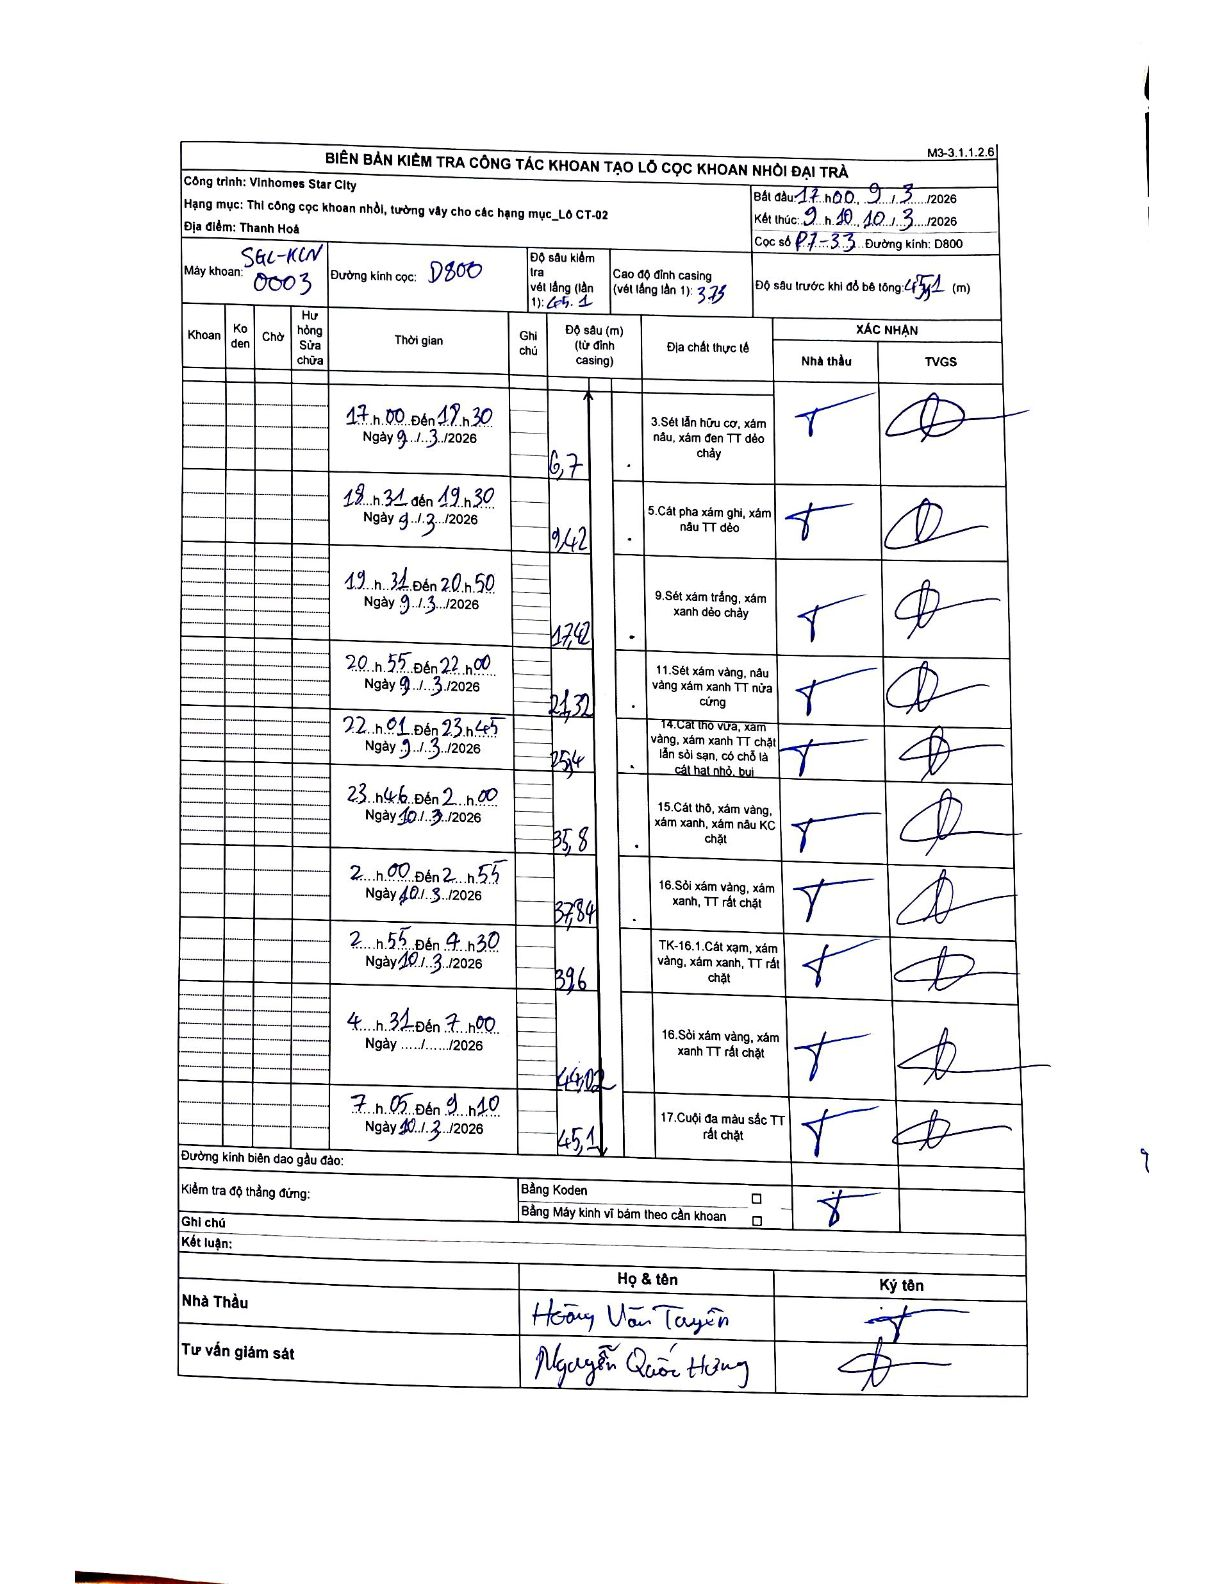 M3-3.1.1.2.6
BIÊN BẢN KIỂM TRA CÔNG TÁC KHOAN TẠO LỖ CỌC KHOAN NHỒI ĐẠI TRÀ
Công trình: Vinhomes Star City
Hạng mục: Thi công cọc khoan nhồi, tường vây cho các hạng mục_Lô CT-02
Địa điểm: Thanh Hoá
Bắt đầu: 17 h 00, 9 / 3 /2026
Kết thúc: 9 h 10, 10 / 3 /2026
Cọc số P7-33 Đường kính: D800
Máy khoan: SGL-KCN 0003
Đường kính cọc: D800
Độ sâu kiểm tra vét lắng (lần 1): 45.1
Cao độ đỉnh casing (vét lắng lần 1): 3.75
Độ sâu trước khi đổ bê tông: 45,1 (m)
Khoan
Ko den
Chờ
Hư hỏng Sửa chữa
Thời gian
Ghi chú
Độ sâu (m) (từ đỉnh casing)
Địa chất thực tế
XÁC NHẬN
Nhà thầu
TVGS
17 h 00 Đến 18 h 30
Ngày 9 / 3 /2026
6,7
3.Sét lẫn hữu cơ, xám nâu, xám đen TT dẻo chảy
18 h 31 đến 19 h 30
Ngày 9 / 3 /2026
9,42
5.Cát pha xám ghi, xám nâu TT dẻo
19 h 31 Đến 20 h 50
Ngày 9 / 3 /2026
17,42
9.Sét xám trắng, xám xanh dẻo chảy
20 h 55 Đến 22 h 00
Ngày 9 / 3 /2026
21,32
11.Sét xám vàng, nâu vàng xám xanh TT nửa cứng
22 h 01 Đến 23 h 45
Ngày 9 / 3 /2026
25,4
14.Cát thô vừa, xám vàng, xám xanh TT chặt lẫn sỏi sạn, có chỗ là cát hạt nhỏ, bụi
23 h 46 Đến 2 h 00
Ngày 10 / 3 /2026
35,8
15.Cát thô, xám vàng, xám xanh, xám nâu KC chặt
2 h 00 Đến 2 h 55
Ngày 10 / 3 /2026
37,84
16.Sỏi xám vàng, xám xanh, TT rất chặt
2 h 55 Đến 4 h 30
Ngày 10 / 3 /2026
39,6
TK-16.1.Cát xạm, xám vàng, xám xanh, TT rất chặt
4 h 31 Đến 7 h 00
Ngày ...../....../2026
44,02
16.Sỏi xám vàng, xám xanh TT rất chặt
7 h 05 Đến 9 h 10
Ngày 10 / 3 /2026
45,1
17.Cuội đa màu sắc TT rất chặt
Đường kính biên dao gầu đào:
Kiểm tra độ thẳng đứng:
Bằng Koden
Bằng Máy kinh vĩ bám theo cần khoan
Ghi chú
Kết luận:
Họ & tên
Ký tên
Nhà Thầu
Hoàng Văn Tuyên
Tư vấn giám sát
Nguyễn Quốc Hưng